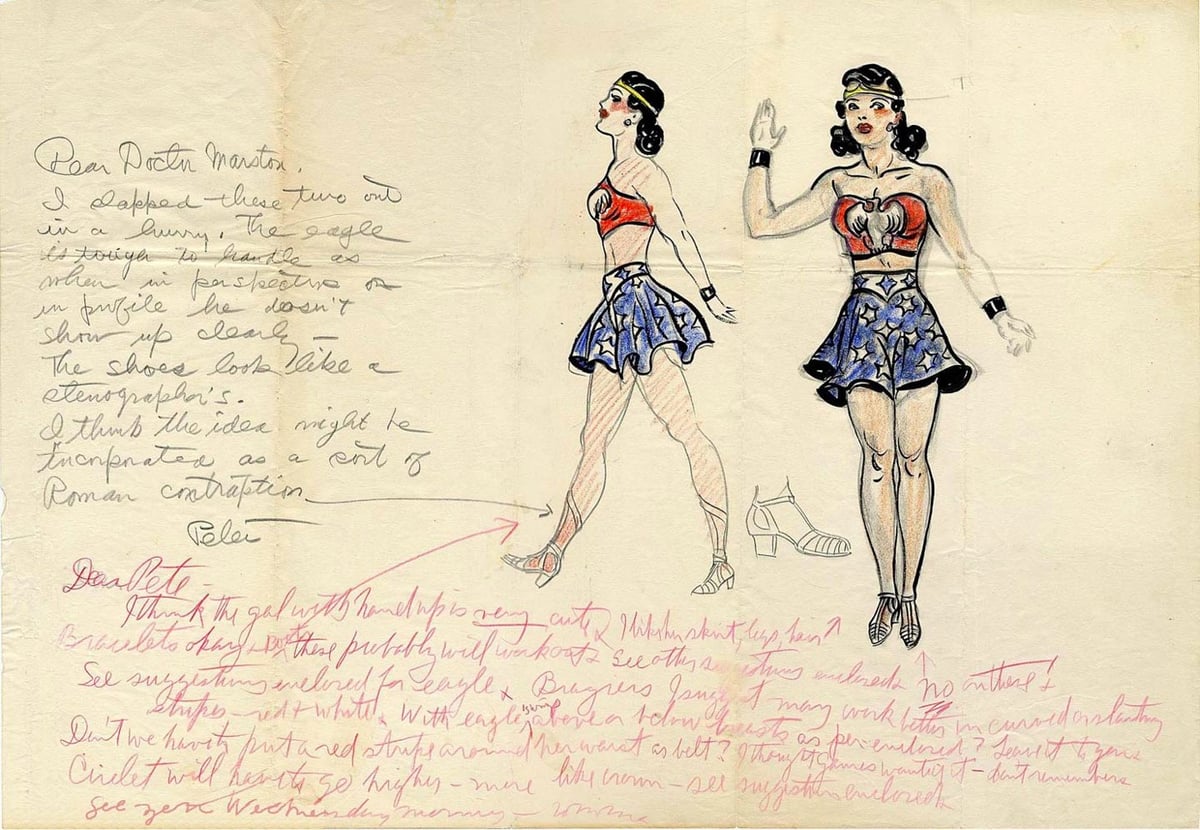 Dear Doctor Marston,
I slapped these two out
in a hurry. The eagle
is tough to handle as
when in perspective or
in profile he doesn't
show up clearly —
The shoes look like a
stenographer's.
I think the idea might be
incorporated as a sort of
Roman contraption
Peter
Dear Pete —
I think the gal with hand up is very cute. I like her skirt, legs, hair
Bracelets okay + boots these probably will work out. See other suggestions enclosed. No on these! +
See suggestions enclosed for eagle. I suggest may work better in curved or slanting
stripes — red + white. With eagle's wings above or below breasts as per enclosed? Leave it to you.
Don't we have to put a red stripe around her waist as belt? I thought Gaines wanted it — don't remember.
Circlet will have to go higher — more like crown — see suggestions enclosed.
See you Wednesday morning —